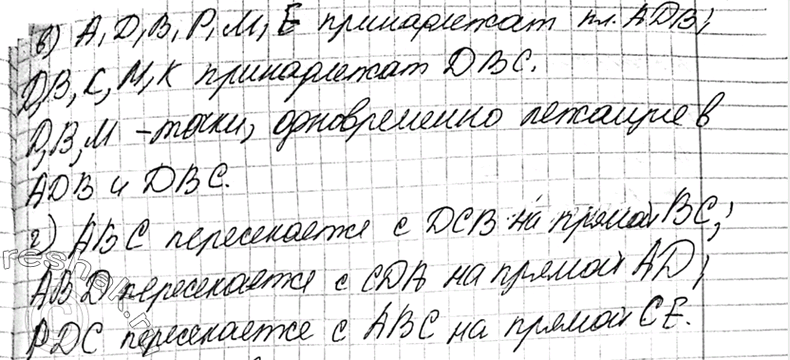 в) A, D, B, P, M, E принадлежат пл. ADB;
D, B, C, M, K принадлежат DBC.
D, B, M - точки, одновременно лежащие в
ADB и DBC.
г) ABC пересекается с DCB на прямой BC;
ABD пересекается с CDA на прямой AD;
PDC пересекается с ABC на прямой CE.